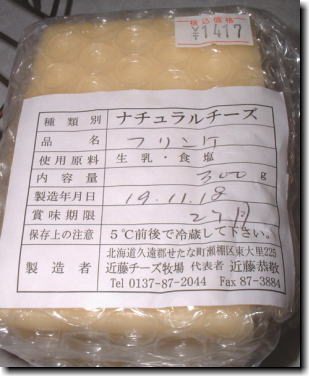 税込価格
¥1417
種類別 ナチュラルチーズ
品名 フリンケ
使用原料 生乳・食塩
内容量 300g
製造年月日 19.11.18
賞味期限 2ケ月
保存上の注意 5℃前後で冷蔵して下さい。
製造者 北海道久遠郡せたな町瀬棚区東大里225
近藤チーズ牧場 代表者 近藤恭敬
Tel 0137-87-2044 Fax 87-3884